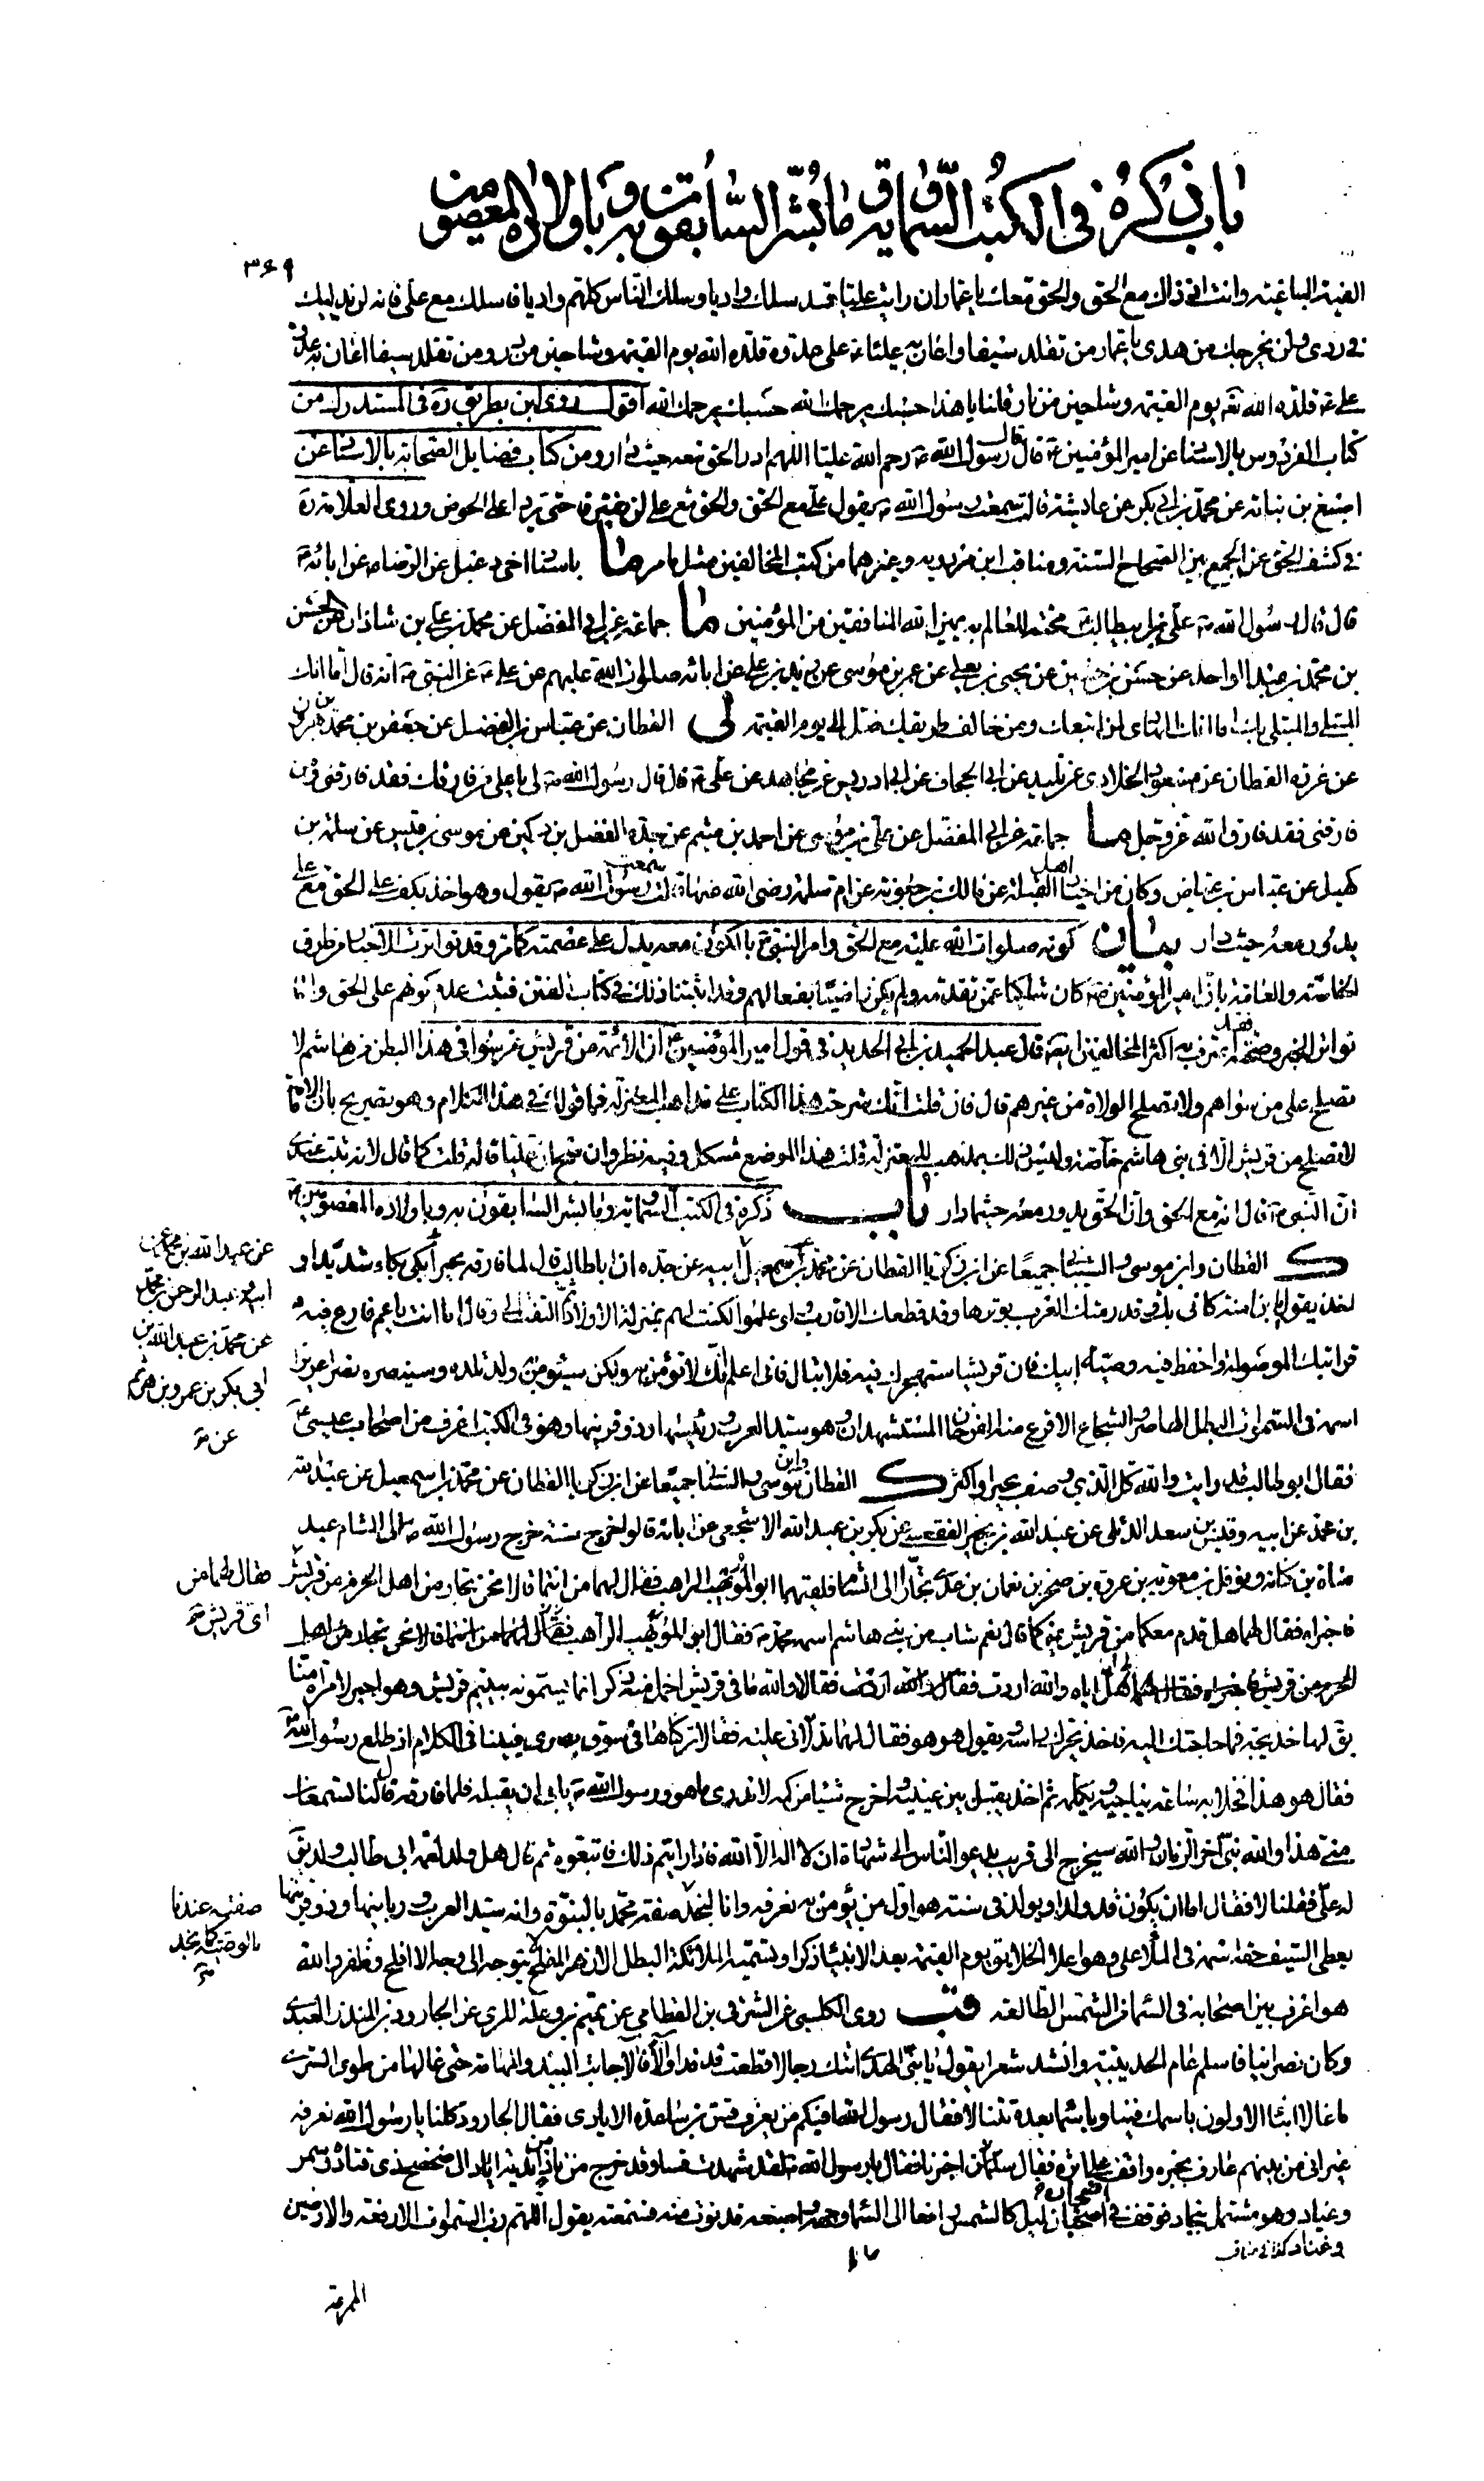 باب ذكره في الكتب السماوية وما بشر السابقون به وباولاده المعصومين
٣٦٩
الفئة الباغية وانت اذ ذاك مع الحق والحق معك يا عمار ان رايت عليا قد سلك واديا وسلك الناس كلهم واديا فاسلك مع علي فانه لن يدليك
في ردى ولن يخرجك من هدى يا عمار من تقلد سيفا واعان به عليا ع على عدوه قلده الله يوم القيمة وشاحين من در ومن تقلد سيفا اعان به عدو
علي ع قلده الله تع يوم القيمة وشاحين من نار قلنا يا هذا حسبك يرحمك الله حسبك يرحمك الله اقول روى ابن بطريق ره في المستدرك من
كتاب الفردوس بالاسناد عن امير المؤمنين ع قال قال رسول الله ص رحم الله عليا اللهم ادر الحق معه حيث دار ومن كتاب فضايل الصحابة بالاسناد عن
اصبغ بن نباته عن محمد بن ابي بكر عن عايشة قالت سمعت رسول الله ص يقول علي مع الحق والحق مع علي لن يفترقا حتى يردا علي الحوض وروى العلامة ره
في كشف الحق عن الجمع بين الصحاح الستة ومناقب ابن مردويه وغيرهما من كتب المخالفين مثل ما مر ما باسناد اخي دعبل عن الرضا ع عن ابائه ع
قال قال رسول الله ص علي بن ابيطالب محنة للعالم به يميز الله المنافقين من المؤمنين ما جماعة عن ابي المفضل عن محمد بن علي بن شاذان عن الحسن
بن محمد بن عبد الواحد عن حسن بن حسين عن يحيى بن يعلى عن عمر بن موسى عن زيد بن علي عن ابائه صلوات الله عليهم عن علي ع عن النبي ص انه قال اما انك
المبتلى والمبتلى بك اما انك الهادي لمن اتبعك ومن خالف طريقك ضل الى يوم القيمة لي القطان عن عباس بن الفضل عن جعفر بن محمد بن هرون
عن عزرة القطان عن مسعود الخلادي عن تليد عن ابي الجحاف عن ابي ادريس عن مجاهد عن علي ع قال قال رسول الله ص لي يا علي من فارقك فقد فارقني ومن
فارقني فقد فارق الله عز وجل ما جماعة عن ابي المفضل عن علي بن احمد بن ميثم عن جده الفضل بن دكين عن موسى بن قيس عن سلمة بن
كهيل عن عياض بن عياض وكان من اخيار اهل القبلة عن مالك بن جعونة عن ام سلمة رضي الله عنها قالت سمعت رسول الله ص يقول وهو اخذ بكف علي الحق مع علي
يدور معه حيث دار بيان كونه صلوات الله عليه مع الحق وامر النبي ص بالكون معه يدل على عصمته كما مر وقد تواترت الاخبار من طرق
الخاصة والعامة بان امير المؤمنين ع كان شاكيا عمن تقدمه ولم يكن راضيا بفعالهم وقد اثبتنا ذلك في كتاب الفتن فثبت عدم كونهم على الحق واما
تواتر الخبر وصحته فقد اعترف به اكثر المخالفين ايضا قال عبد الحميد بن ابي الحديد في قول امير المؤمنين ع ان الائمة من قريش غرسوا في هذا البطن من هاشم لا
تصلح على من سواهم ولا تصلح الولاة من غيرهم قال فان قلت انك شرحت هذا الكتاب على مذاهب المعتزلة فما قولك في هذا الكلام وهو تصريح بان الامامة
لا تصلح من قريش الا في بني هاشم خاصة وليس ذلك بمذهب للمعتزلة قلت هذا الموضع مشكل وفيه نظر وان صح ان عليا قاله قلت كما قال لانه ثبت عندي
ان النبي ص قال انه مع الحق وان الحق يدور معه حيثما دار باب ذكره في الكتب السماوية وما بشر السابقون به وباولاده المعصومين ع
ك القطان وابن موسى والسناني جميعا عن ابن زكريا القطان عن محمد بن اسمعيل عن ابيه عن جده ان ابا طالب قال لما فارقه بحيرا بكى بكاء شديدا و
عن عبد الله بن محمد عن
ابيه وعبد الرحمن بن محمد
عن محمد بن عبد الله بن
ابي بكر بن عمرو بن حزم
عن صح
اخذ يقول يا بن امنة كاني بك وقد رمتك العرب بوترها وقد قطعك الاقارب ولو علموا لكنت لهم بمنزلة الاولاد ثم التفت الي وقال اما انت يا عم فارع فيه
قرابتك الموصولة واحفظ فيه وصية ابيك فان قريشا ستهجرك فيه فلا تبال فاني اعلم انك لا تؤمن به ولكن سيؤمن به ولد تلده وسينصره نصرا عزيزا
اسمه في السموات البطل الهاصر والشجاع الاقرع منه الفرخان المستشهدان وهو سيد العرب ورئيسها وذو قرنيها وهو في الكتب اعرف من اصحاب عيسى ع
فقال ابو طالب قد رايت والله كل الذي وصف بحيرا واكثر ك القطان وابن موسى والسناني جميعا عن ابن زكريا القطان عن محمد بن اسمعيل عن عبد الله
بن محمد عن ابيه وقيس بن سعد الدئلي عن عبد الله بن بحير الفقعسي عن بكر بن عبد الله الاشجعي عن ابائه قالوا خرج سنة خرج رسول الله ص الى الشام عبد
مناة بن كنانة ونوفل بن معوية بن عروة بن صخر بن نعمان بن عدي تجارا الى الشام فلقيهما ابو المويهب الراهب فقال لهما من انتما قالا نحن تجار من اهل الحرم من قريش
فقال لهما من
اي قريش صح
فاخبراه فقال لهما هل قدم معكما من قريش غيركما قال نعم شاب من بني هاشم اسمه محمد ص فقال ابو المويهب الراهب فقال لهما من انتما قالا نحن تجار من اهل
الحرم من قريش فاخبراه فقال لهما هل اياه والله اردت فقالا والله ما في قريش اخمل منه ذكرا انما يسمونه بيتيم قريش وهو اجير لامراة منا
يق لها خديجة فما حاجتك اليه فاخذ يحرك راسه ويقول هو هو فقال لهما تدلاني عليه فقالا تركناه في سوق بصرى فبينما هم في الكلام اذ طلع رسول الله ص
فقال هو هذا فخلا به ساعة يناجيه ويكلمه ثم اخذ يقبل بين عينيه واخرج شيئا من كمه لا ندري ما هو ورسول الله ص يابى ان يقبله فلما فارقه قال لنا تسمعان
مني هذا والله نبي اخر الزمان والله سيخرج الى قريب يدعو الناس الى شهادة ان لا اله الا الله فاذا رايتم ذلك فاتبعوه ثم قال هل ولد لعمه ابي طالب ولد يق
له علي فقلنا لا فقال اما ان يكون قد ولد او يولد في سنته هو اول من يؤمن به نعرفه وانا لنجد صفته محمد بالنبوة وانه سيد العرب وربانيها وذو قرنيها
صفته عندنا
بالوصية كما نجد
صح
يعطي السيف حقه اسمه في الملا الاعلى علي هو اعلا الخلايق يوم القيمة بعد الانبياء ذكرا وتسميه الملائكة البطل الازهر المفلح لا يتوجه الى وجه الا افلح وظفر والله
هو اعرف بين اصحابه في السماء من الشمس الطالعة قب روى الكلبي عن الشرقي بن القطامي عن تميم بن وعلة المري عن الجارود بن المنذر العبدي
وكان نصرانيا فاسلم عام الحديبية وانشد شعرا يقول يا نبي الهدى اتتك رجالا قطعت قد قدا والا فالا جابت البيد والمهامه حتى غالها من طوى السرى
ما غالا انبا الاولون باسمك فينا وباسماء بعده تتلالا فقال رسول الله افيكم من يعرف قس بن ساعدة الايادي فقال الجارود كلنا يا رسول الله نعرفه
غير اني من بينهم عارف بخبره واقف على اثره فقال سلمان اخبرنا فقال يا رسول الله لقد شهدت قسا وقد خرج من ناد من اندية اياد الى ضحضح ذي قتاد وسمر
وغياد وهو مشتمل بنجاد فوقف في اضحيان ليل كالشمس رافعا الى السماء وجهه واصبعه فدنوت منه فسمعته يقول اللهم رب السموات الارفعة والارضين
الممرعة